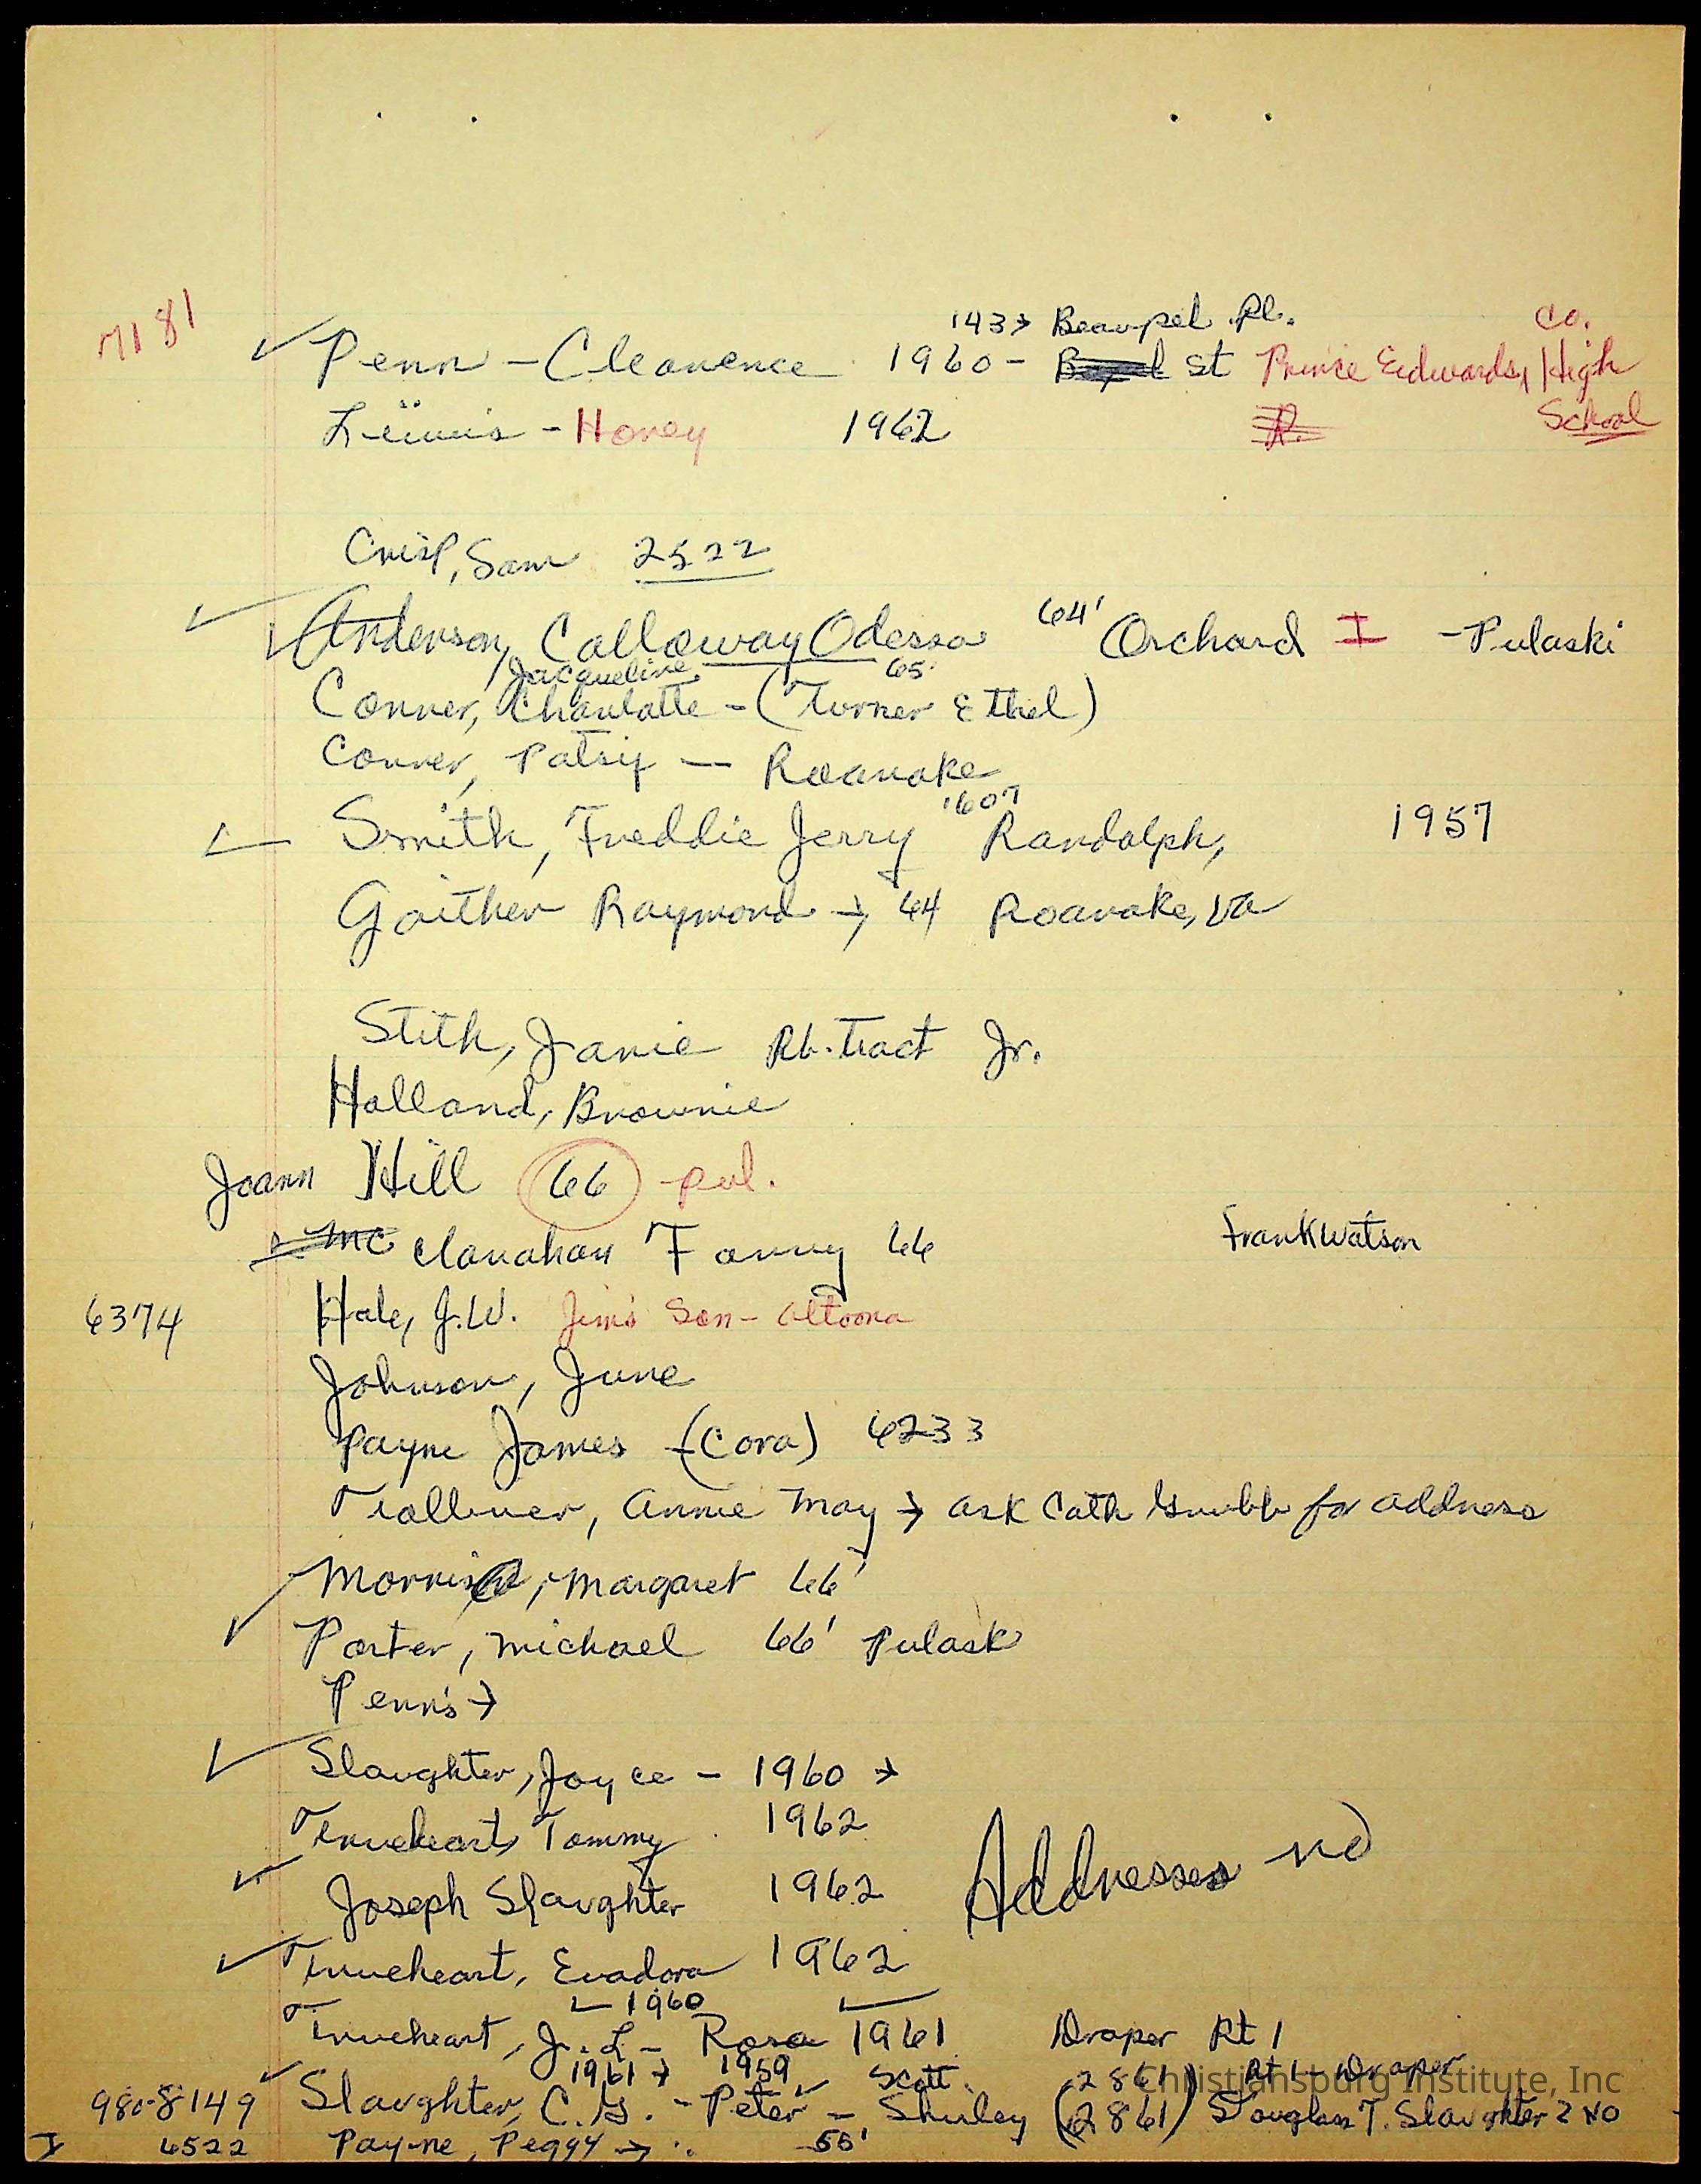 143→ Beaupel Pl. Co.
7181 ✓ Penn - Clearence 1960 - St Prince Edwards, High
Lewis - Honey 1962 School
Crisp, Sam 2522
✓ Anderson, Calloway Odessa 64' Orchard I - Pulaski
Jacqueline 65'
Conner, Charlotte - (Turner Ethel)
Conner, Patsy — Roanoke
✓ Smith, Freddie Jerry 1607 Randolph, 1957
Gaither Raymond → 64 Roanoke, Va
Stith, Janie Rb. Tract Jr.
Holland, Brownie
Joann Hill 66 pul.
Mc Clanahan Fanny 66 Frank Watson
6374 Hale, J.W. Jim's Son - Altoona
Johnson, June
Payne James - (Cora) 6233
Annie May → ask Cath for address
Margaret 66'
✓ Porter, Michael 66' Pulask
Penn's →
✓ Slaughter, Joyce - 1960 →
Trueheart, Tommy 1962
✓ Joseph Slaughter 1962 Addresses no
✓ Trueheart, Evadora 1962
1960
Trueheart, J. L - Rosa 1961 Draper Rt 1
1961 → 1959 Scott (2861) Rt 1 - Draper
980-8149 ✓ Slaughter, C. G. - Peter - Shirley (2861) Douglass T. Slaughter 2 NO
I 6522 Payne, Peggy → 56'
Christiansburg Institute, Inc